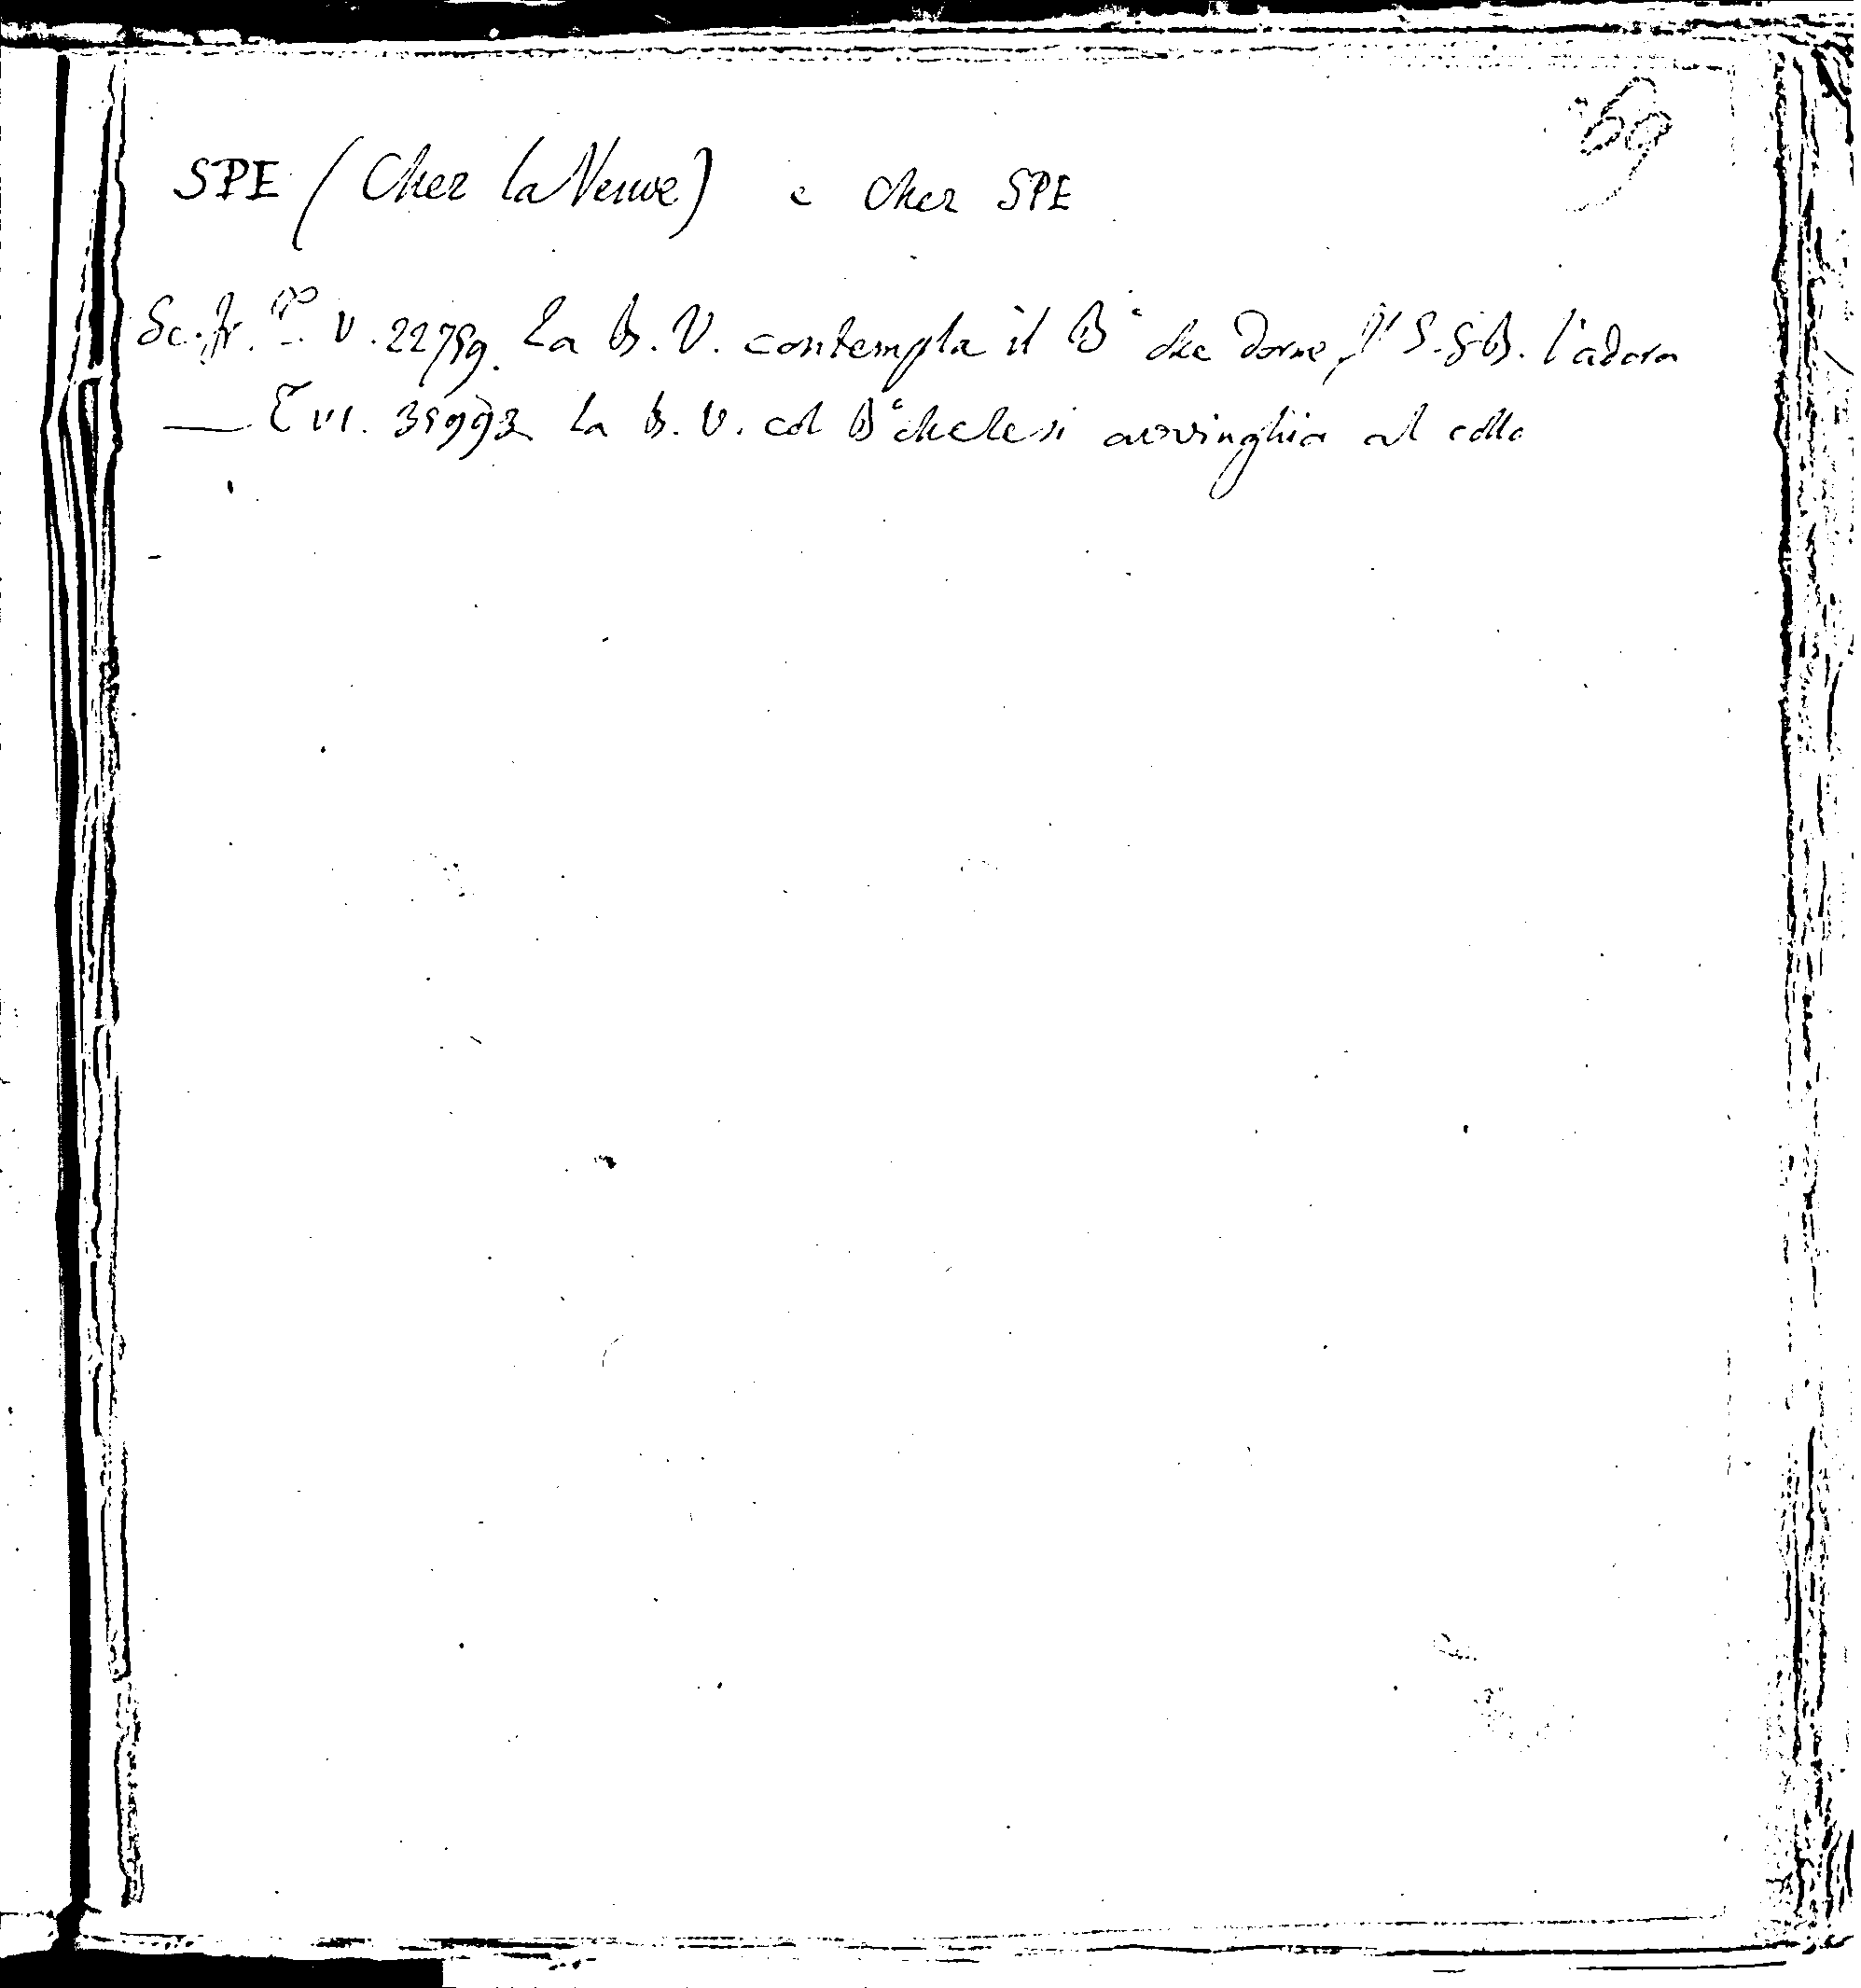 69
SPE (Chez la Veuve) e chez SPE
Sc. fr. V. 22759. La B. V. contempla il Bº che dorme, S. GB. l'adora
— T VI. 35993 La B. V. col Bº che le si avvinghia al collo